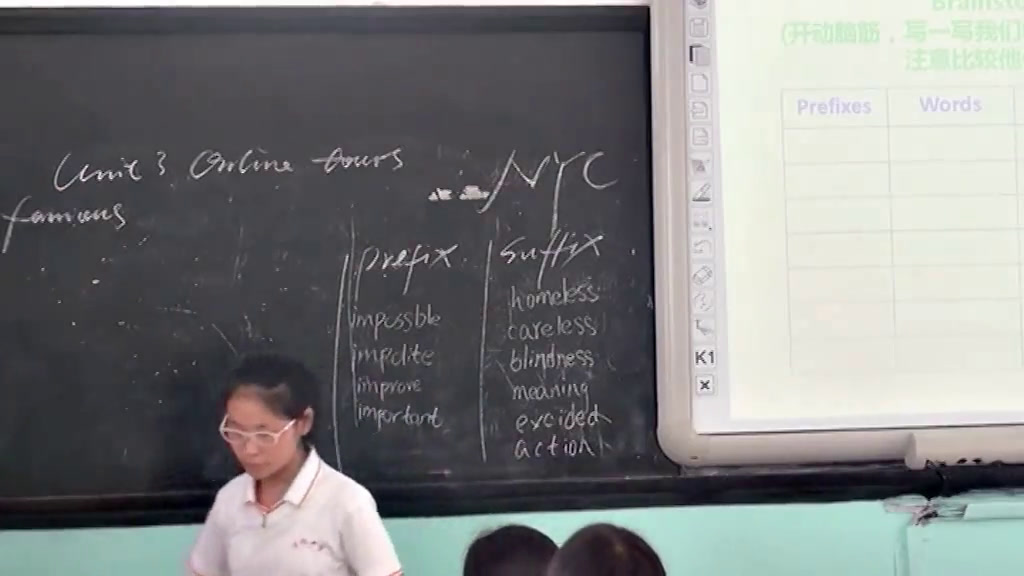 Unit 3 Online tours
NYC
famous
Prefix
Suffix
impossible
impolite
improve
important
homeless
careless
blindness
meaning
excided
action
(开动脑筋，写一写我们
注意比较他
Prefixes
Words
K1